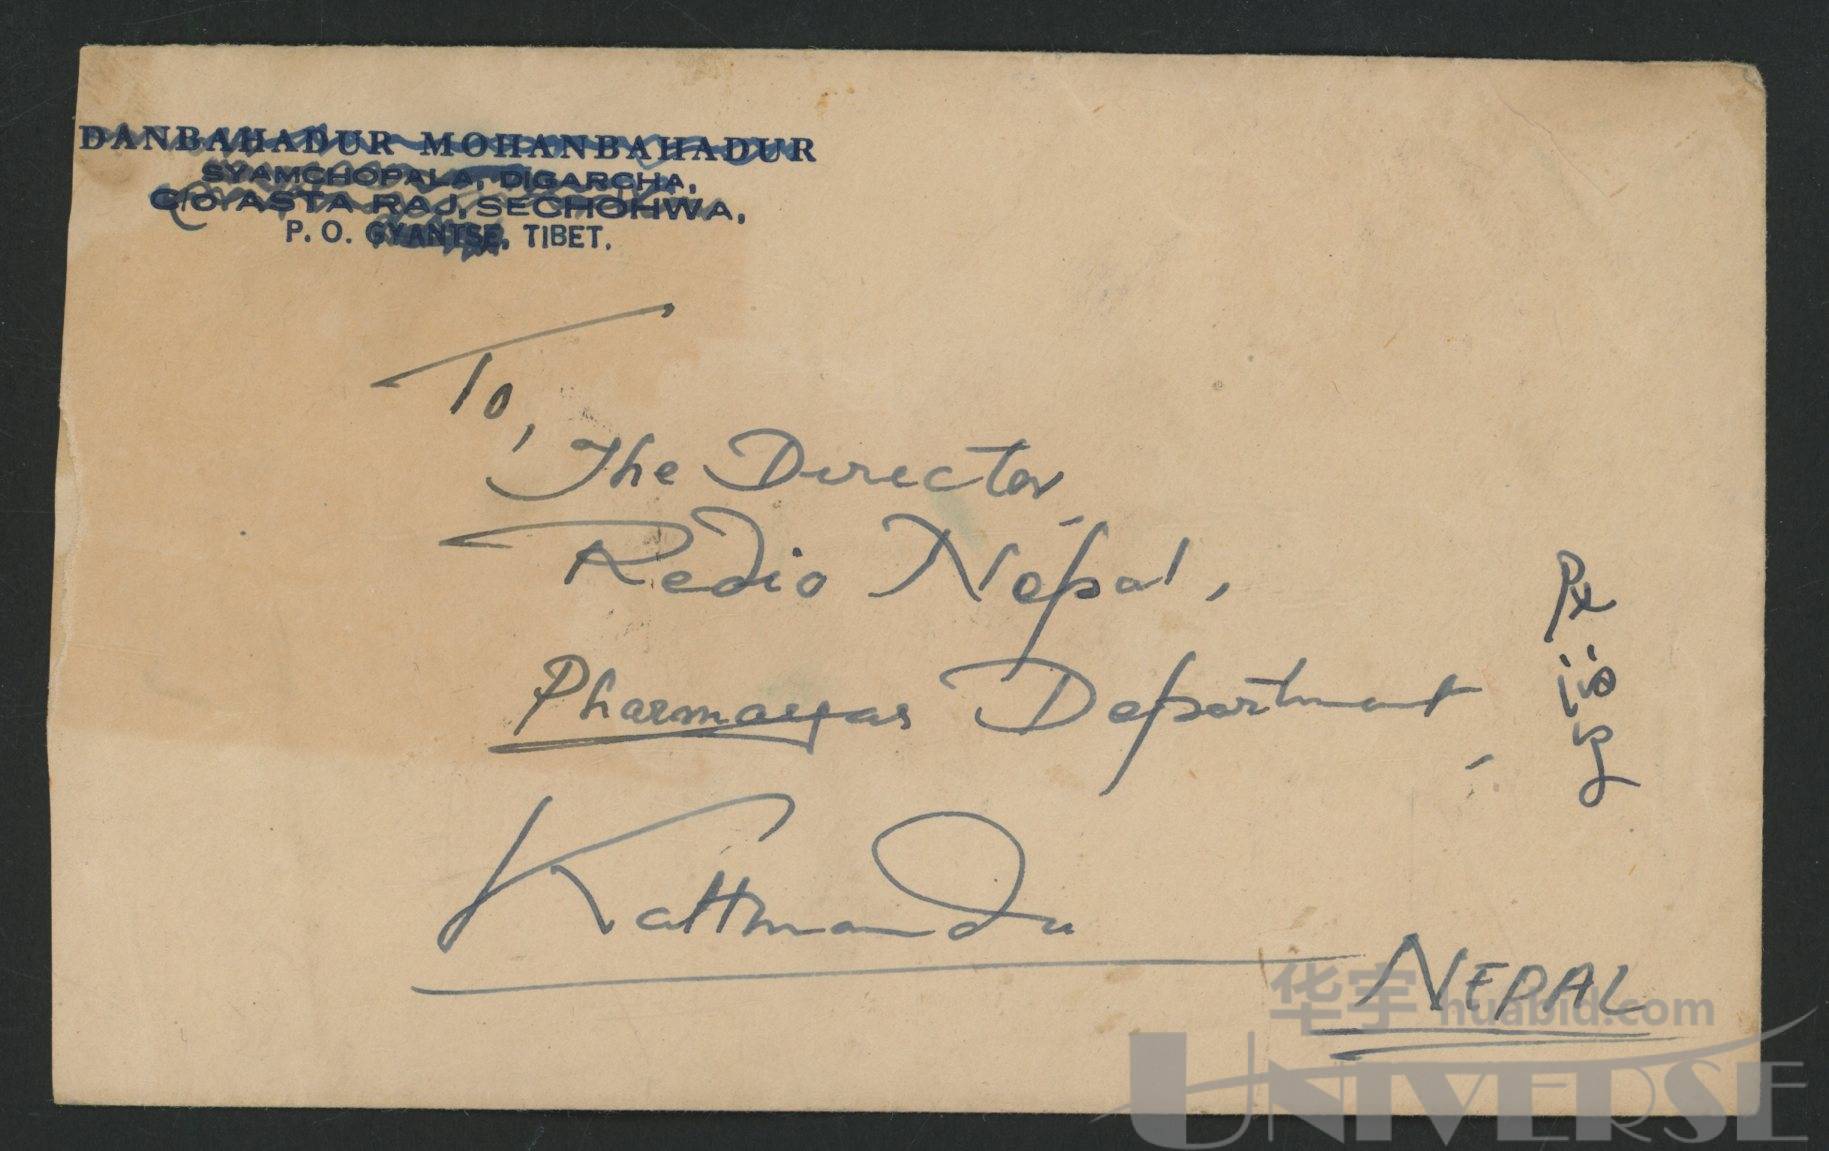 DANBAHADUR MOHANBAHADUR
SYAMCHOPALA, DIGARCHA,
C/O ASTA RAJ, SECHOHWA,
P. O. GYANTSE, TIBET.
To,
The Director,
Redio Nepal,
Department,
Kathmandu
NEPAL
尼泊尔
华宇 huabid.com
UNIVERSE